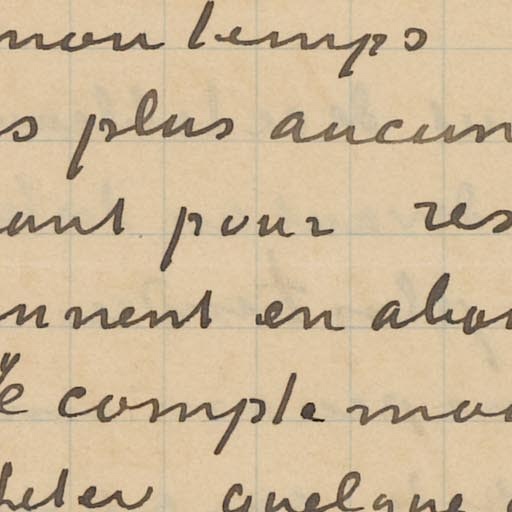 mon temps
s plus aucun
ant pour res
nnent en abon
Je compte mo
heter quelque